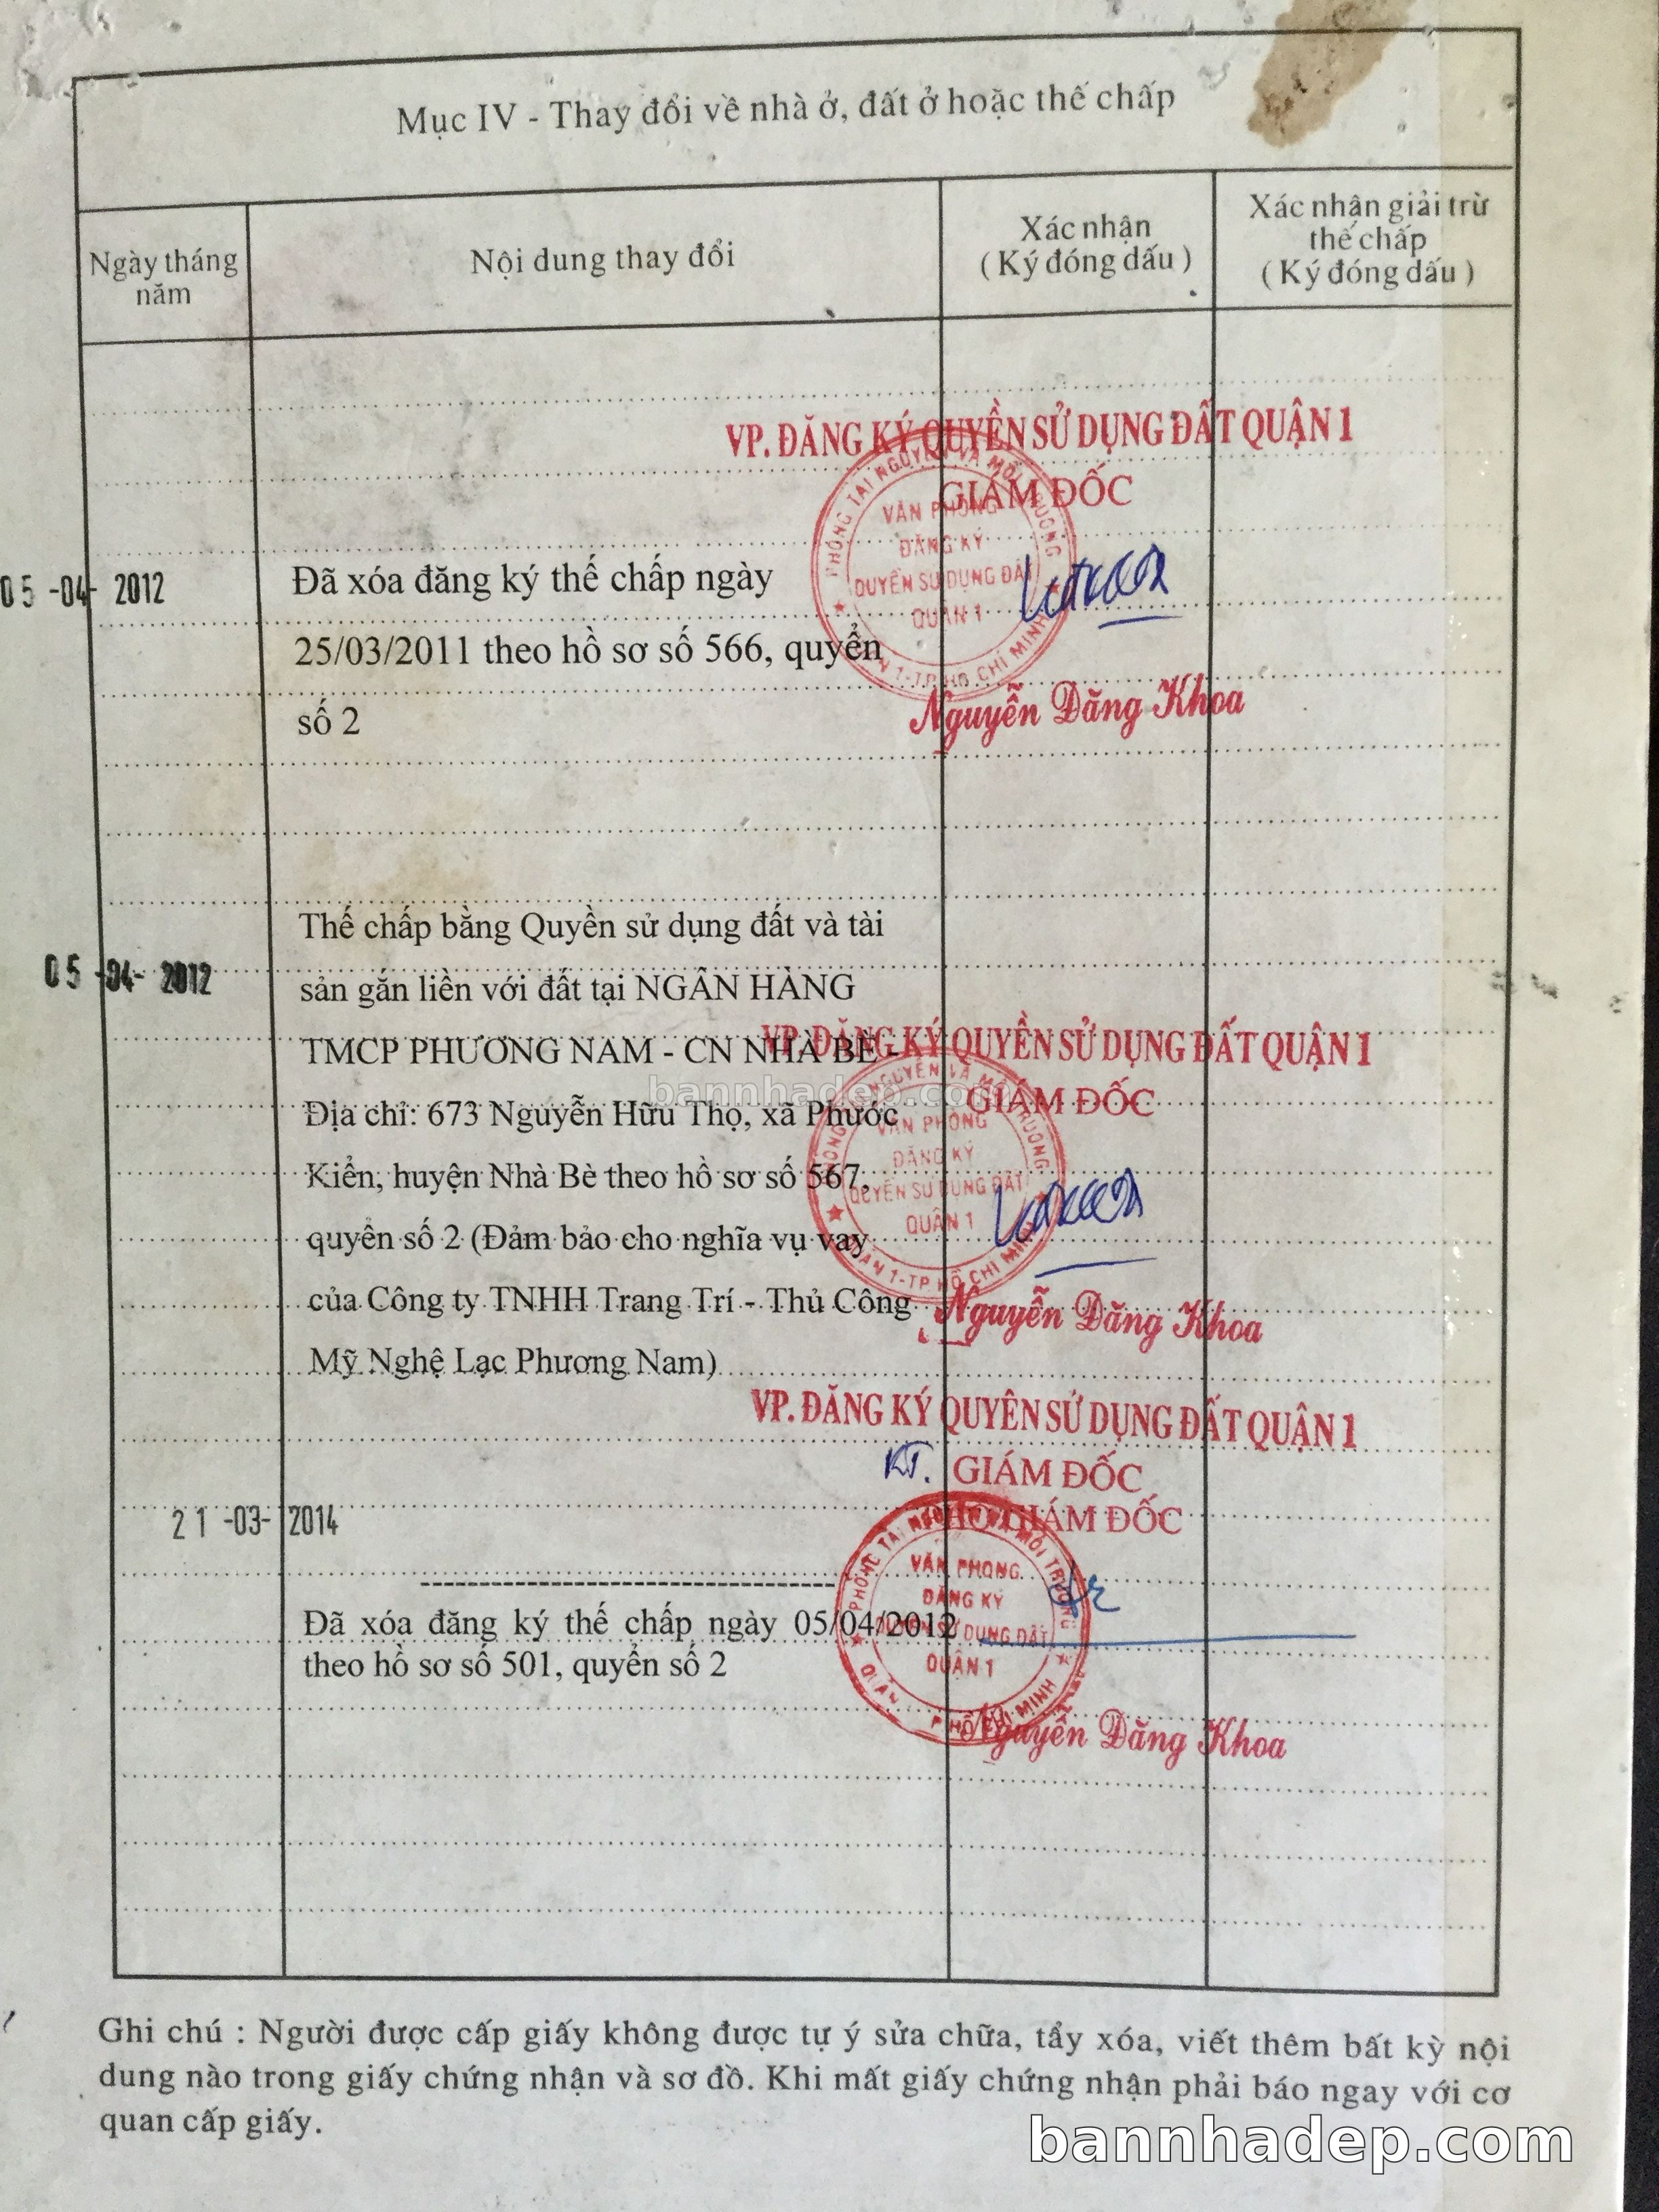 Mục IV - Thay đổi về nhà ở, đất ở hoặc thế chấp
Ngày tháng
năm
Nội dung thay đổi
Xác nhận
( Ký đóng dấu )
Xác nhận giải trừ
thế chấp
( Ký đóng dấu )
VP. ĐĂNG KÝ QUYỀN SỬ DỤNG ĐẤT QUẬN 1
GIÁM ĐỐC
PHÒNG TÀI NGUYÊN VÀ MÔI TRƯỜNG
VĂN PHÒNG
ĐĂNG KÝ
QUYỀN SỬ DỤNG ĐẤT
QUẬN 1
QUẬN 1-TP HỒ CHÍ MINH
05 -04- 2012
Đã xóa đăng ký thế chấp ngày
25/03/2011 theo hồ sơ số 566, quyển
số 2
Nguyễn Đăng Khoa
05 -04- 2012
Thế chấp bằng Quyền sử dụng đất và tài
sản gắn liền với đất tại NGÂN HÀNG
TMCP PHƯƠNG NAM - CN NHÀ BÈ -
Địa chỉ: 673 Nguyễn Hữu Thọ, xã Phước
Kiển, huyện Nhà Bè theo hồ sơ số 567,
quyển số 2 (Đảm bảo cho nghĩa vụ vay
của Công ty TNHH Trang Trí - Thủ Công
Mỹ Nghệ Lạc Phương Nam)
VP. ĐĂNG KÝ QUYỀN SỬ DỤNG ĐẤT QUẬN 1
GIÁM ĐỐC
bannhadep.com
VĂN PHÒNG
ĐĂNG KÝ
QUYỀN SỬ DỤNG ĐẤT
QUẬN 1
QUẬN 1-TP HỒ CHÍ MINH
Nguyễn Đăng Khoa
VP. ĐĂNG KÝ QUYỀN SỬ DỤNG ĐẤT QUẬN 1
KT. GIÁM ĐỐC
PHÓ GIÁM ĐỐC
21 -03- 2014
VĂN PHÒNG
ĐĂNG KÝ
QUYỀN SỬ DỤNG ĐẤT
QUẬN 1
Đã xóa đăng ký thế chấp ngày 05/04/2012
theo hồ sơ số 501, quyển số 2
Nguyễn Đăng Khoa
Ghi chú : Người được cấp giấy không được tự ý sửa chữa, tẩy xóa, viết thêm bất kỳ nội
dung nào trong giấy chứng nhận và sơ đồ. Khi mất giấy chứng nhận phải báo ngay với cơ
quan cấp giấy.
bannhadep.com